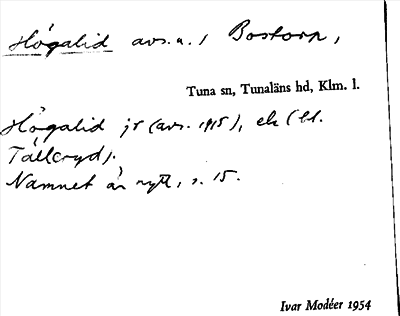 Högalid avs. u. / Bostorp,
Tuna sn, Tunaläns hd, Klm. l.
Högalid jr (avs. 1915), ek (bl.
Tälleryd).
Namnet är nytt, s. 15.
Ivar Modéer 1954